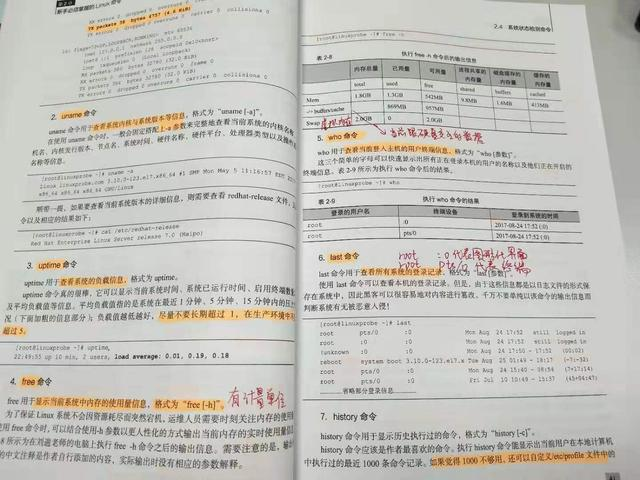 第2章
新手必须掌握的Linux命令
RX errors 0 dropped 0 overruns 0 frame 0
TX packets 38 bytes 4757 (4.6 KiB)
TX errors 0 dropped 0 overruns 0 carrier 0 collisions 0
lo: flags=73<UP,LOOPBACK,RUNNING> mtu 65536
inet 127.0.0.1 netmask 255.0.0.0
inet6 ::1 prefixlen 128 scopeid 0x10<host>
loop txqueuelen 0 (Local Loopback)
RX packets 386 bytes 32780 (32.0 KiB)
RX errors 0 dropped 0 overruns 0 frame 0
TX packets 386 bytes 32780 (32.0 KiB)
TX errors 0 dropped 0 overruns 0 carrier 0 collisions 0
2. uname 命令
uname 命令用于查看系统内核与系统版本等信息，格式为“uname [-a]”。
在使用 uname 命令时，一般会固定搭配上-a 参数来完整地查看当前系统的内核名称、主
机名、内核发行版本、节点名、系统时间、硬件名称、硬件平台、处理器类型以及操作系
名称等信息。
[root@linuxprobe ~]# uname -a
Linux linuxprobe.com 3.10.0-123.el7.x86_64 #1 SMP Mon May 5 11:16:57 EDT
x86_64 x86_64 x86_64 GNU/Linux
顺带一提，如果要查看当前系统版本的详细信息，则需要查看 redhat-release 文件，
令以及相应的结果如下：
[root@linuxprobe ~]# cat /etc/redhat-release
Red Hat Enterprise Linux Server release 7.0 (Maipo)
3. uptime 命令
uptime 用于查看系统的负载信息，格式为 uptime。
uptime 命令真的很棒，它可以显示当前系统时间、系统已运行时间、启用终端数量
及平均负载值等信息。平均负载值指的是系统在最近 1 分钟、5 分钟、15 分钟内的压
况（下面加粗的信息部分）；负载值越低越好，尽量不要长期超过 1，在生产环境中不
超过 5。
[root@linuxprobe ~]# uptime
22:49:55 up 10 min, 2 users, load average: 0.01, 0.19, 0.18
4. free 命令
有计量单位
free 用于显示当前系统中内存的使用量信息，格式为“free [-h]”。
为了保证 Linux 系统不会因资源耗尽而突然宕机，运维人员需要时刻关注内存的使用
使用 free 命令时，可以结合使用-h 参数以更人性化的方式输出当前内存的实时使用量信息
8 所示为在刘遄老师的电脑上执行 free -h 命令之后的输出信息。需要注意的是，输出
的中文注释是作者自行添加的内容，实际输出时没有相应的参数解释。
2.4 系统状态检测命令
[root@linuxprobe ~]# free -h
表 2-8 执行 free -h 命令后的输出信息
内存总量 已用量 可用量 进程共享的内存量 磁盘缓存的内存量 缓存的内存量
total used free shared buffers cached
Mem 1.8GB 1.3GB 542MB 9.8MB 1.6MB 413MB
-/+ buffers/cache 869MB 957MB
Swap 2.0GB 0 2.0GB
5. who 命令
who 用于查看当前登入主机的用户终端信息，格式为“who [参数]”。
这三个简单的字母可以快速显示出所有正在登录本机的用户的名称以及他们正在开启的
终端信息。表 2-9 所示为执行 who 命令后的结果。
[root@linuxprobe ~]# who
表 2-9 执行 who 命令的结果
登录的用户名 终端设备 登录到系统的时间
root :0 2017-08-24 17:52 (:0)
root pts/0 2017-08-24 17:52 (:0)
6. last 命令
root :0代表图形化界面
root pts/0 代表终端
last 命令用于查看所有系统的登录记录，格式为“last [参数]”。
使用 last 命令可以查看本机的登录记录。但是，由于这些信息都是以日志文件的形式保
存在系统中，因此黑客可以很容易地对内容进行篡改。千万不要单纯以该命令的输出信息而
判断系统有无被恶意入侵！
[root@linuxprobe ~]# last
root pts/0 :0 Mon Aug 24 17:52 still logged in
root :0 :0 Mon Aug 24 17:52 still logged in
(unknown :0 :0 Mon Aug 24 17:50 - 17:52 (00:02)
reboot system boot 3.10.0-123.el7.x Tue Aug 25 01:49 - 18:17 (-7:-32)
root pts/0 :0 Mon Aug 24 15:40 - 08:54 (7+17:14)
root pts/0 :0 Fri Jul 10 10:49 - 15:37 (45+04:47)
………………省略部分登录信息………………
7. history 命令
history 命令用于显示历史执行过的命令，格式为“history [-c]”。
history 命令应该是作者最喜欢的命令。执行 history 命令能显示出当前用户在本地计算机
中执行过的最近 1000 条命令记录。如果觉得 1000 不够用，还可以自定义/etc/profile 文件中的
41